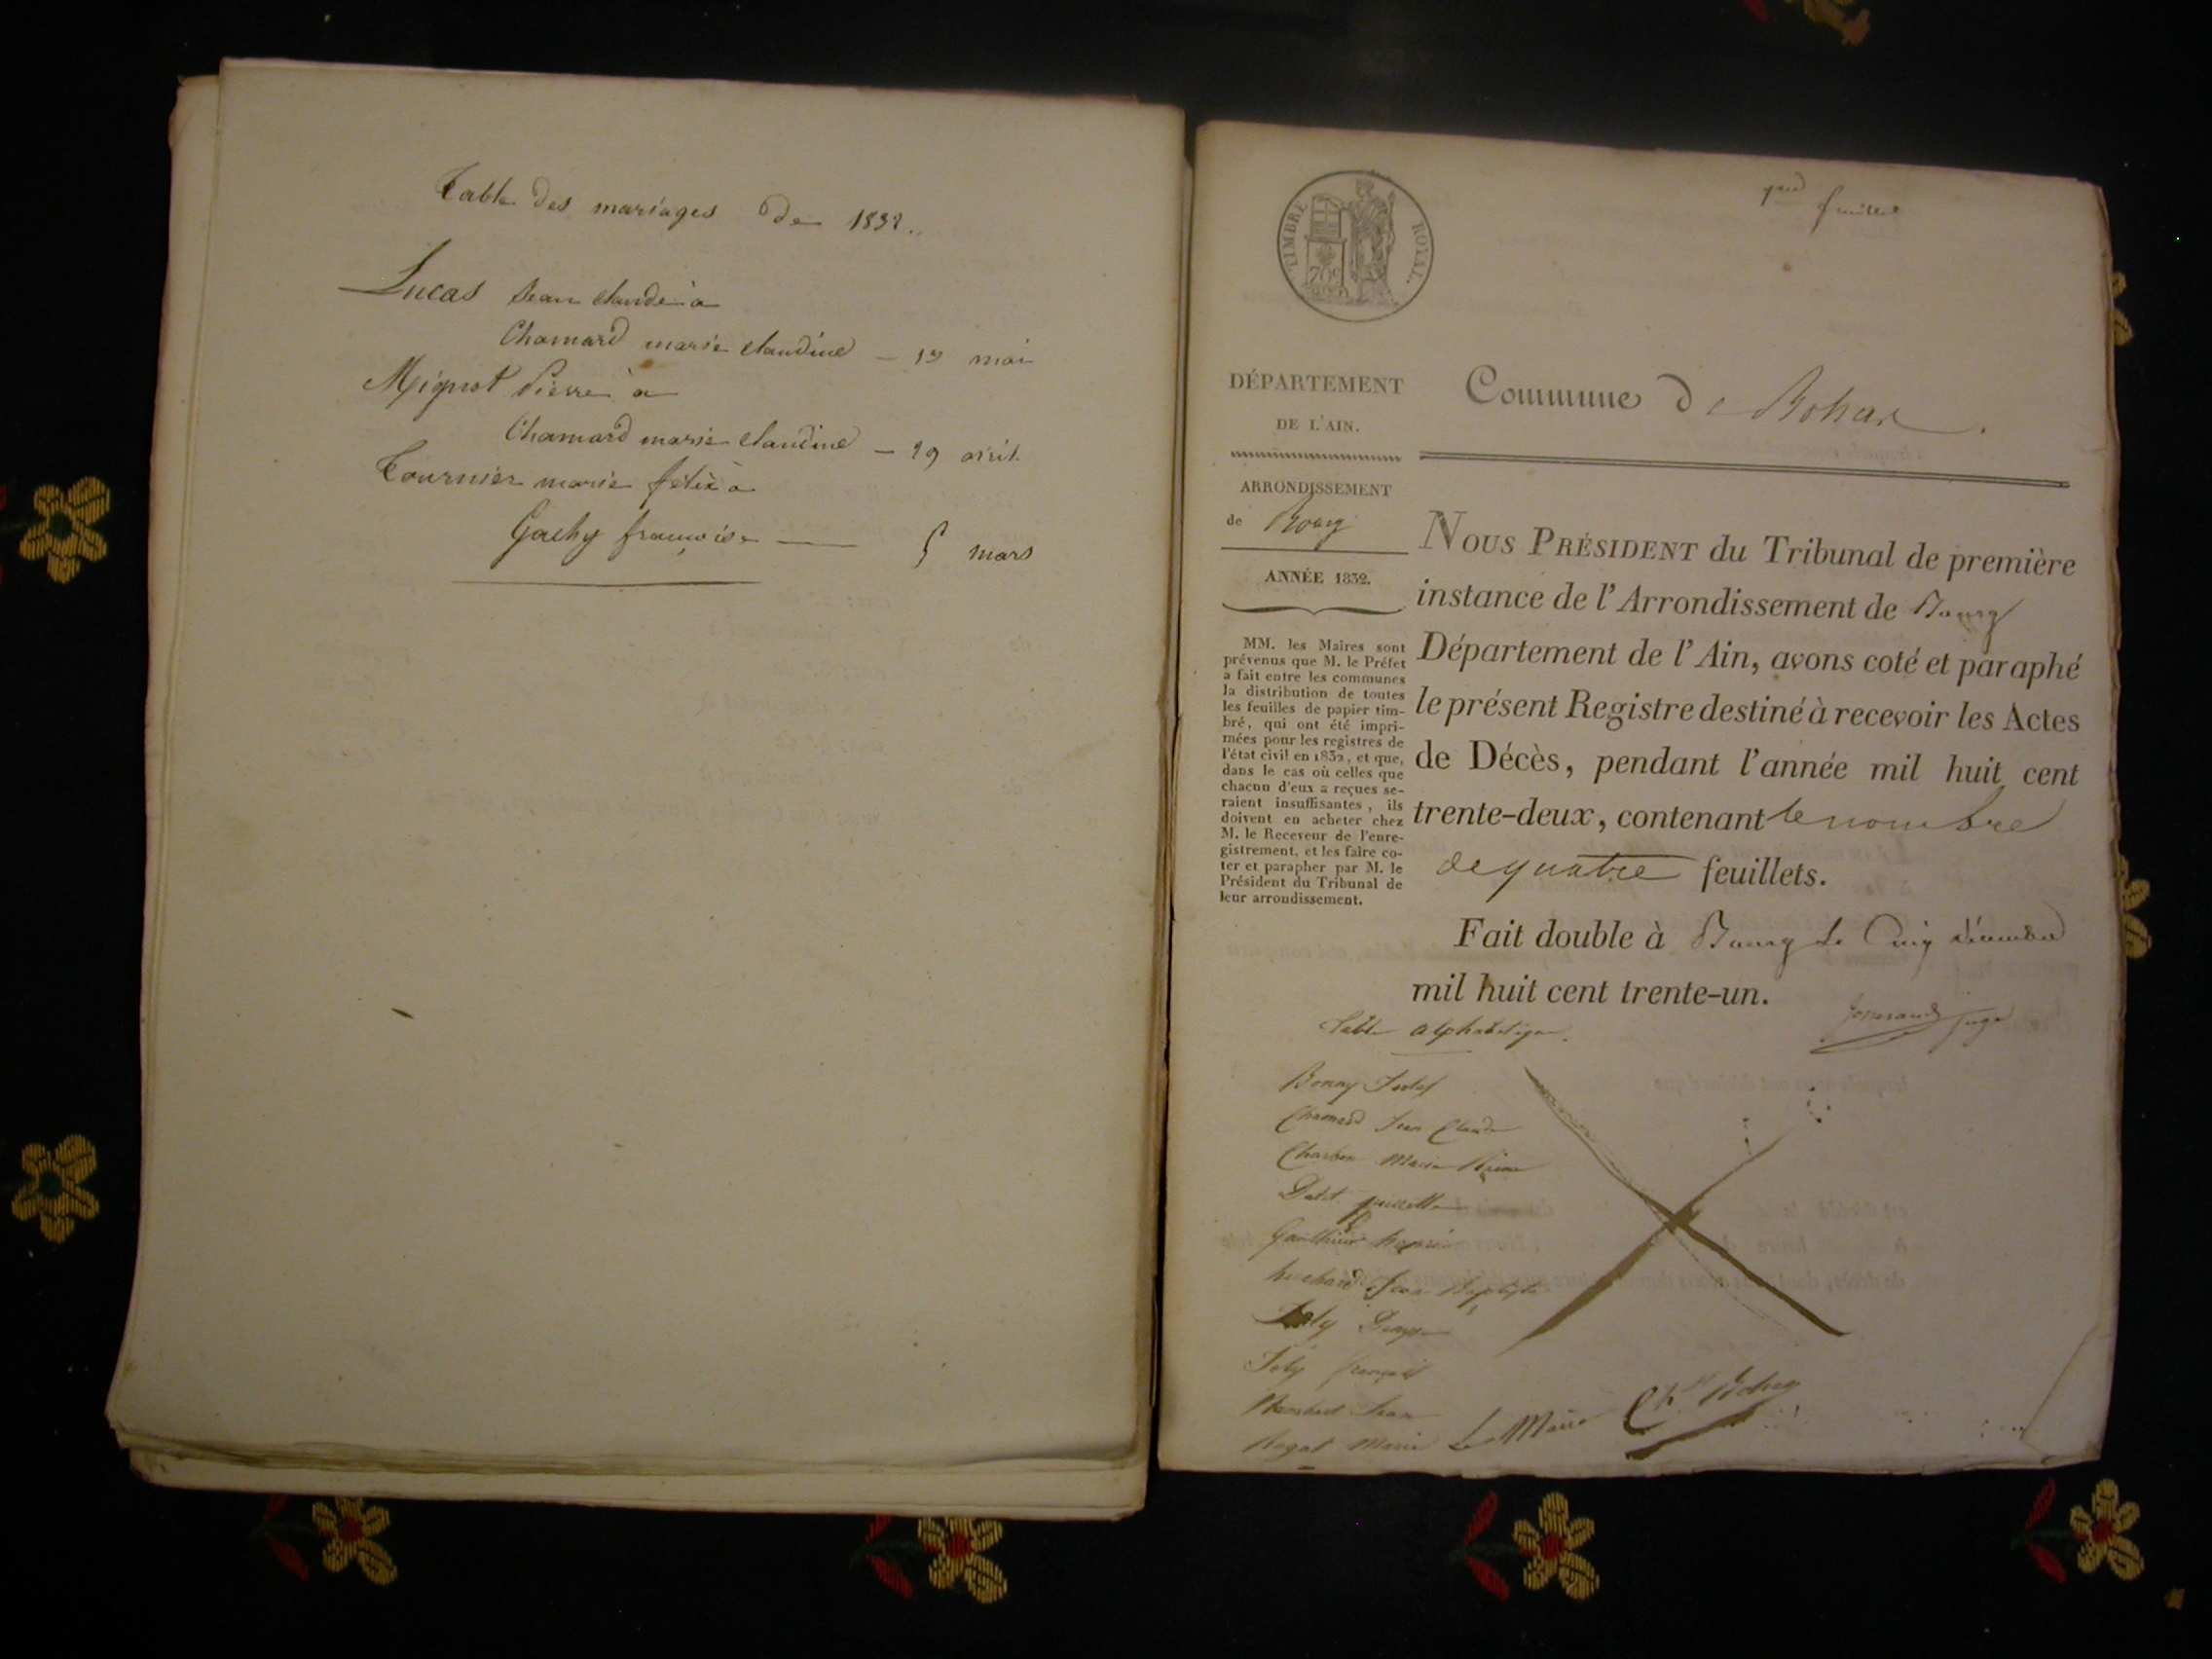 Table des mariages de 1832.
Lucas Jean Claude à
Chamard marie Claudine — 19 mai
Mignot Pierre à
Chamard marie Claudine — 29 avril
Tournier marie felix à
Gachy françoise — 5 mars
feuillet
TIMBRE ROYAL.
70c
DÉPARTEMENT
DE L'AIN.
Commune de Bohas.
ARRONDISSEMENT
de Bourg
ANNÉE 1832.
MM. les Maires sont
prévenus que M. le Préfet
a fait entre les communes
la distribution de toutes
les feuilles de papier tim-
bré, qui ont été impri-
mées pour les registres de
l'état civil en 1832, et que,
dans le cas où celles que
chacun d'eux a reçues se-
raient insuffisantes, ils
doivent en acheter chez
M. le Receveur de l'enre-
gistrement, et les faire co-
ter et parapher par M. le
Président du Tribunal de
leur arrondissement.
NOUS PRÉSIDENT du Tribunal de première
instance de l'Arrondissement de Bourg
Département de l'Ain, avons coté et paraphé
le présent Registre destiné à recevoir les Actes
de Décès, pendant l'année mil huit cent
trente-deux, contenant le nombre
de quatre feuillets.
Fait double à Bourg le Cinq décembre
mil huit cent trente-un.
juge
Table alphabétique.
Chamard Jean Claude
Marie
Gauthier
huchard Jean Baptiste
Joly
Joly françois
Jean
Marie
Le Maire